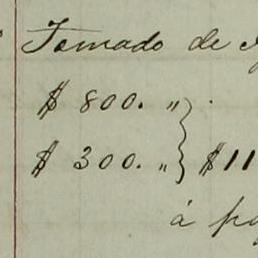 Tomado de
$ 800. "
$ 300. " } $ 11
á